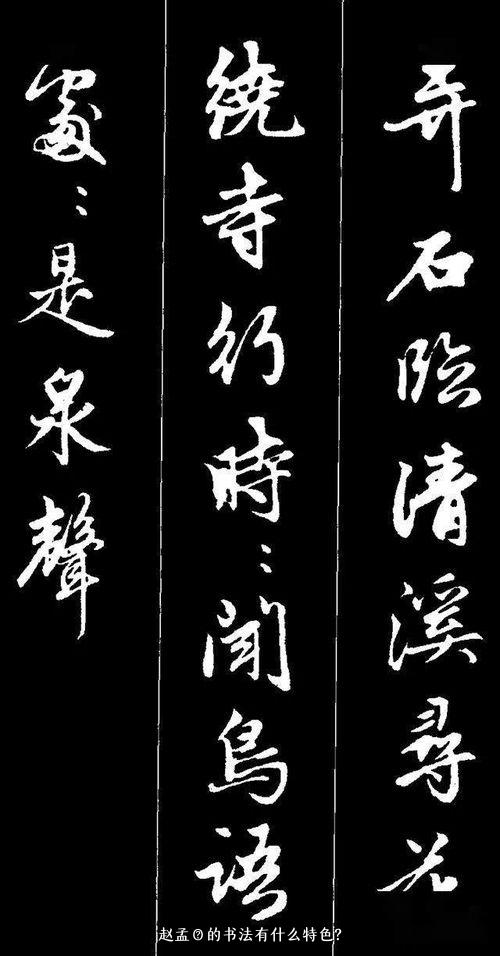 弄石臨清溪尋花
繞寺行時〻聞鳥語
處〻是泉聲
赵孟的书法有什么特色?